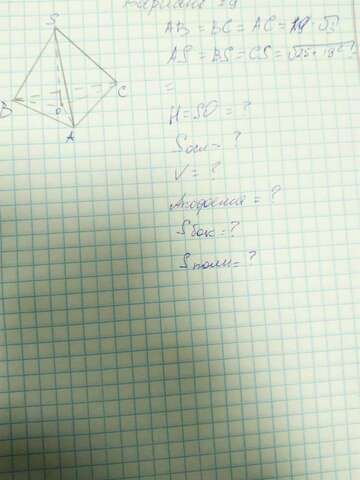 Вариант 19
S
B
C
O
A
AB = BC = AC = 19·√3
AS = BS = CS =
=
H = SO = ?
Sосн = ?
V = ?
Апофема = ?
Sбок = ?
Sполн = ?